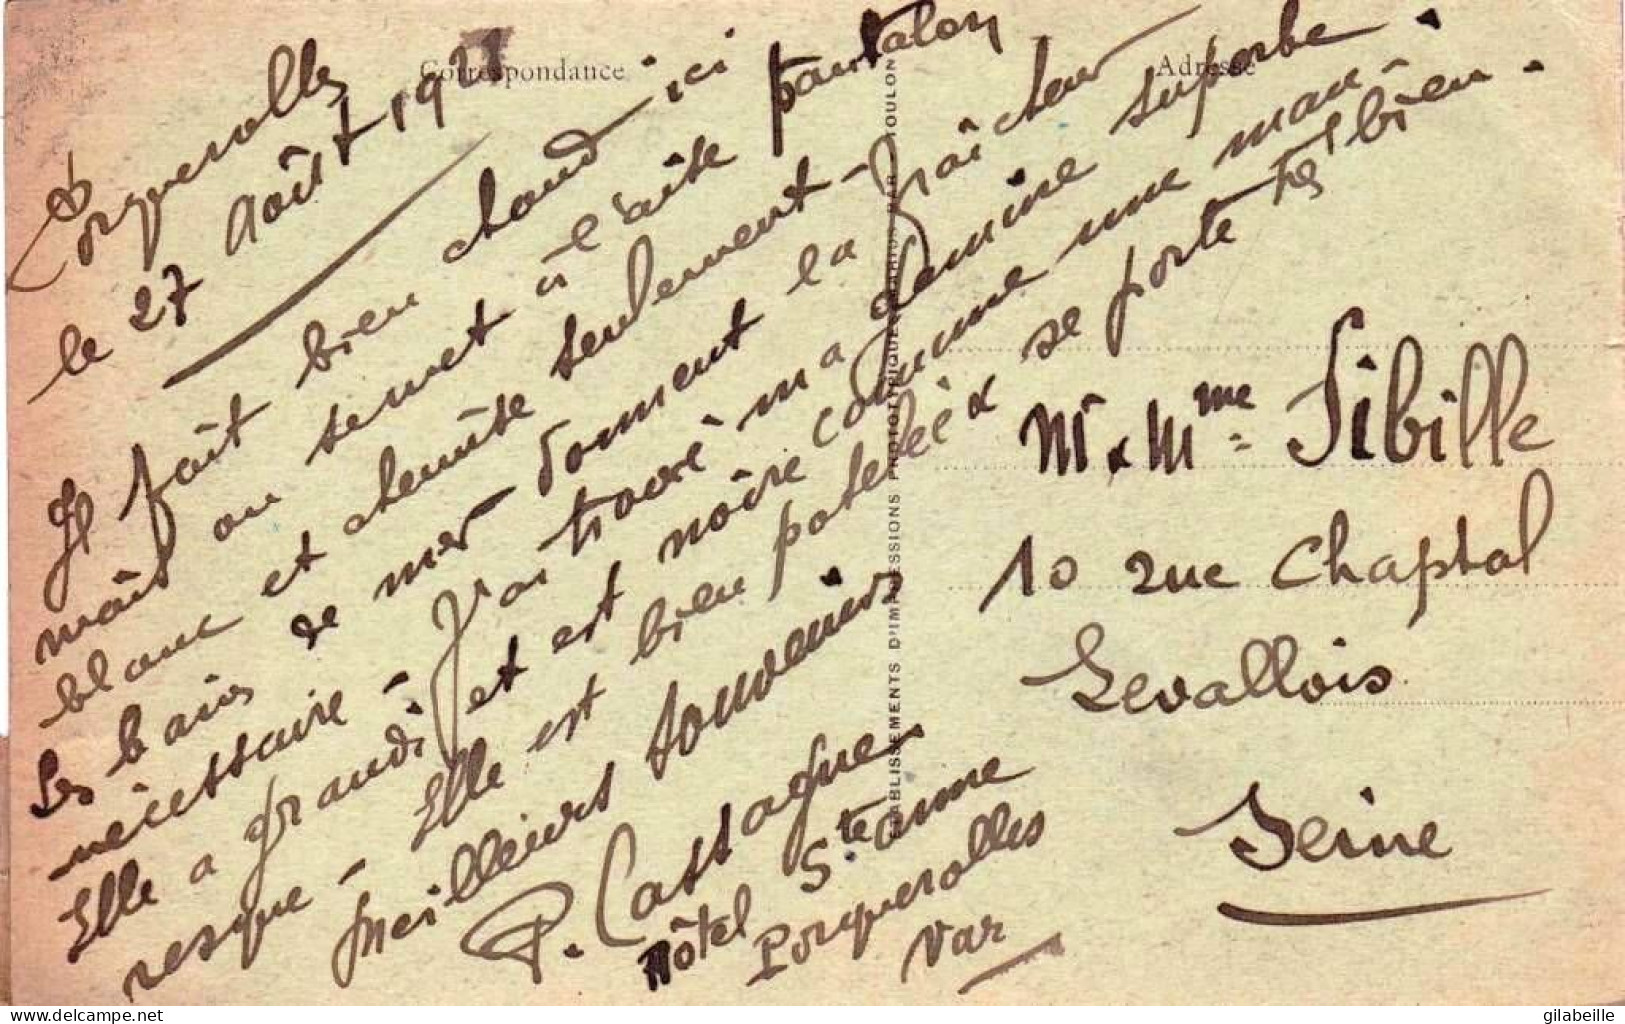 Correspondance
Adresse
Porquerolles
le 27 Août 1921
Il fait bien chaud ici
mais on se met à l'aise pantalon
blanc et chemise seulement -
Les bains de mer donnent la fraîcheur
nécessaire - J'ai trouvé ma gamine superbe.
Elle a grandi et est noire comme une mau-
resque - Elle est bien potelée & se porte très bien.
Meilleurs souvenirs
P. Castagne
Hôtel Ste Anne
Porquerolles
Var
ÉTABLISSEMENTS D'IMPRESSIONS PHOTOTYPIQUES TOULON
Mr & Mme Sibille
10 rue Chaptal
Levallois
Seine
gilabeille